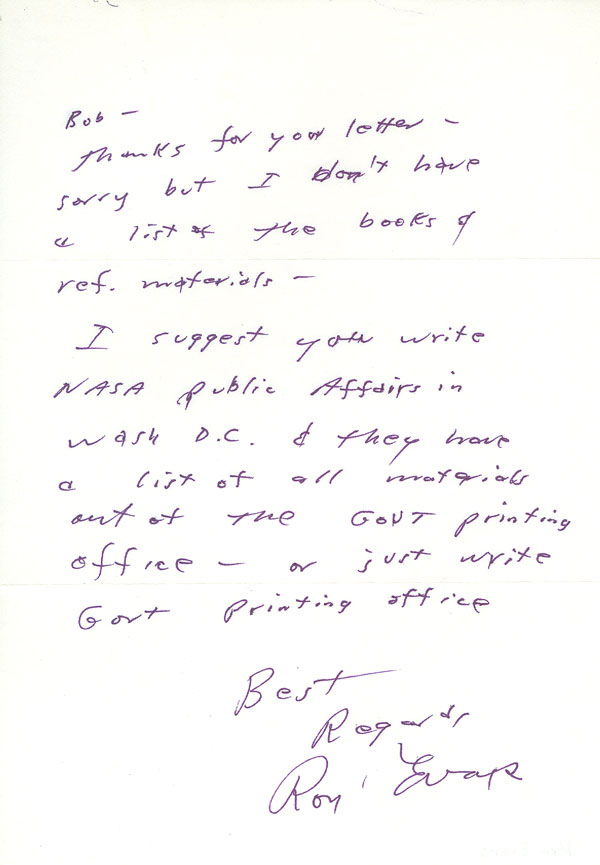 Bob -
Thanks for your letter -
sorry but I don't have
a list of the books &
ref. materials -
I suggest you write
NASA Public Affairs in
Wash D.C. & they have
a list of all materials
out of the GOVT printing
office - or just write
Govt Printing office
Best
Regards
Ron Evans